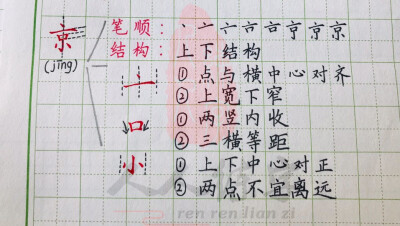 笔顺: 丶 亠 六 亩 亩 亨 亨 京
京 结构: 上下结构
(jīng)
亠 ① 点与横中心对齐
② 上宽下窄
口 ① 两竖内收
② 三横等距
小 ① 上下中心对正
② 两点不宜离远
ren ren lian zi